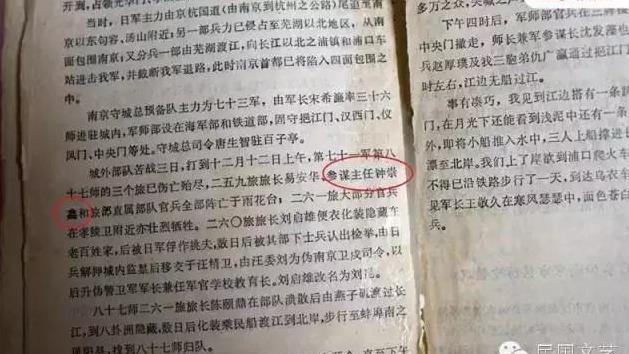 开溯,占领光华门
当时,日军主力由南京杭国道(由南京到杭州之公路)尾追至南
京以东句容、汤山附近;另一部兵力已侵占至芜湖以北地区,从南
面包围南京;又分兵一部由芜湖渡江,向长江以北之浦镇和浦口车
站进击我军,并截断我军退路,此时南京首都已将陷入四面包围之
中。
南京守城总预备队主力为七十三军,由军长宋希濂率三十六
师进驻城内,军师部设在海军部和铁道部,固守挹江门、汉西门、仪
凤门、中央门等处。守城总司令唐生智驻百子亭。
城外部队苦战三日,打到十二月十二日上午,第七十一军第八
十七师的三个旅已伤亡殆尽,二五九旅旅长易安华、参谋主任钟崇
鑫和旅部直属部队官兵全部阵亡于雨花台;二六一旅大部分官兵
在孝陵卫附近亦壮烈牺牲。二六〇旅旅长刘启雄便衣化装隐藏在
老百姓家,后被日军俘作挑夫,数日后被其部下士兵认出检举,由日
兵解押城内监禁后移交于汪精卫,由汪委刘为伪南京卫戍司令,以
后升伪警卫军军长兼任军官学校教育长。刘启雄改名为刘
八十七师二六一旅旅长陈颐鼎在部队溃散后由燕子矶渡过长
江,到八卦洲隐藏,数日后化装乘民船渡江到北岸,步行至蚌埠南之
找到八十七师归队。
多万之众,
下午四时后,军师部官兵在三牌楼
中央门撤走,师长兼军参谋长沈发藻也
兵赵厚璞及我三胞弟仇广赢通过挹江门
左右时,江边无船过江。
事有凑巧,我见到江边搭有一条跳
门,在月光下还能看到浅水中还有一条
即,将小船推入水中,三人上船撑进长
漂至北岸,我们上了岸欲到浦口乘火车
不得已沿铁路步行了一天,到达乌衣
见军长王敬久在寒风瑟瑟中,面色苍白
民国文艺